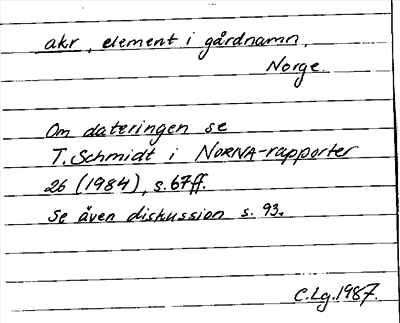 akr, element i gårdnamn,
Norge.
Om dateringen se
T. Schmidt i NORNA-rapporter
26 (1984), s. 67ff.
Se även diskussion s. 93.
C.Lg. 1987.